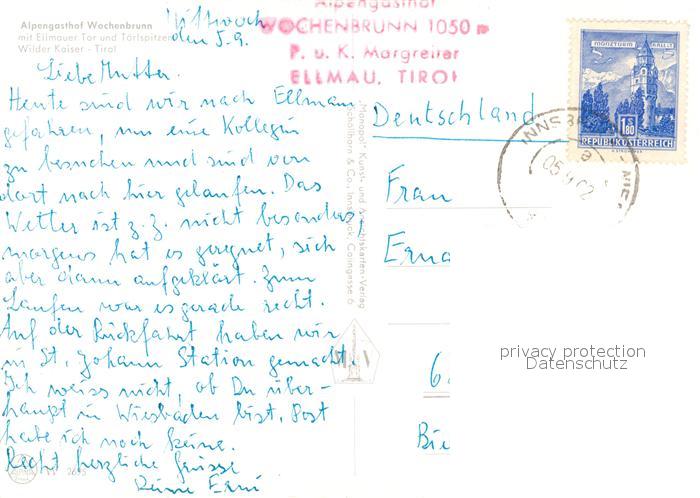 Alpengasthof Wochenbrunn
mit Ellmauer Tor und Törlspitzen
Wilder Kaiser - Tirol
Mittwoch
den 5.9.
Liebe Mutter.
Heute sind wir nach Ellmau
gefahren, um eine Kollegin
zu besuchen und sind von
dort nach hier gelaufen. Das
Wetter ist z.Z. nicht besonders,
morgens hat es geregnet, sich
aber dann aufgeklärt. Zum
Laufen war es gerade recht.
Auf der Rückfahrt haben wir
in St. Johann Station gemacht.
Ich weiss nicht, ob Du über-
haupt in Wiesbaden bist. Post
habe ich noch keine.
Recht herzliche Grüsse
Deine Erni
Alpengasthof
WOCHENBRUNN 1050 m
P. u. K. Margreiter
ELLMAU, TIROL
"Monopol" Kunst- und Ansichtskarten-Verlag
& Co., Innsbruck,
MÜNZTURM HALL i. T.
1.80
REPUBLIK ÖSTERREICH
INNSBR
Deutschland
Frau
Erna
6
Bie
privacy protection
Datenschutz